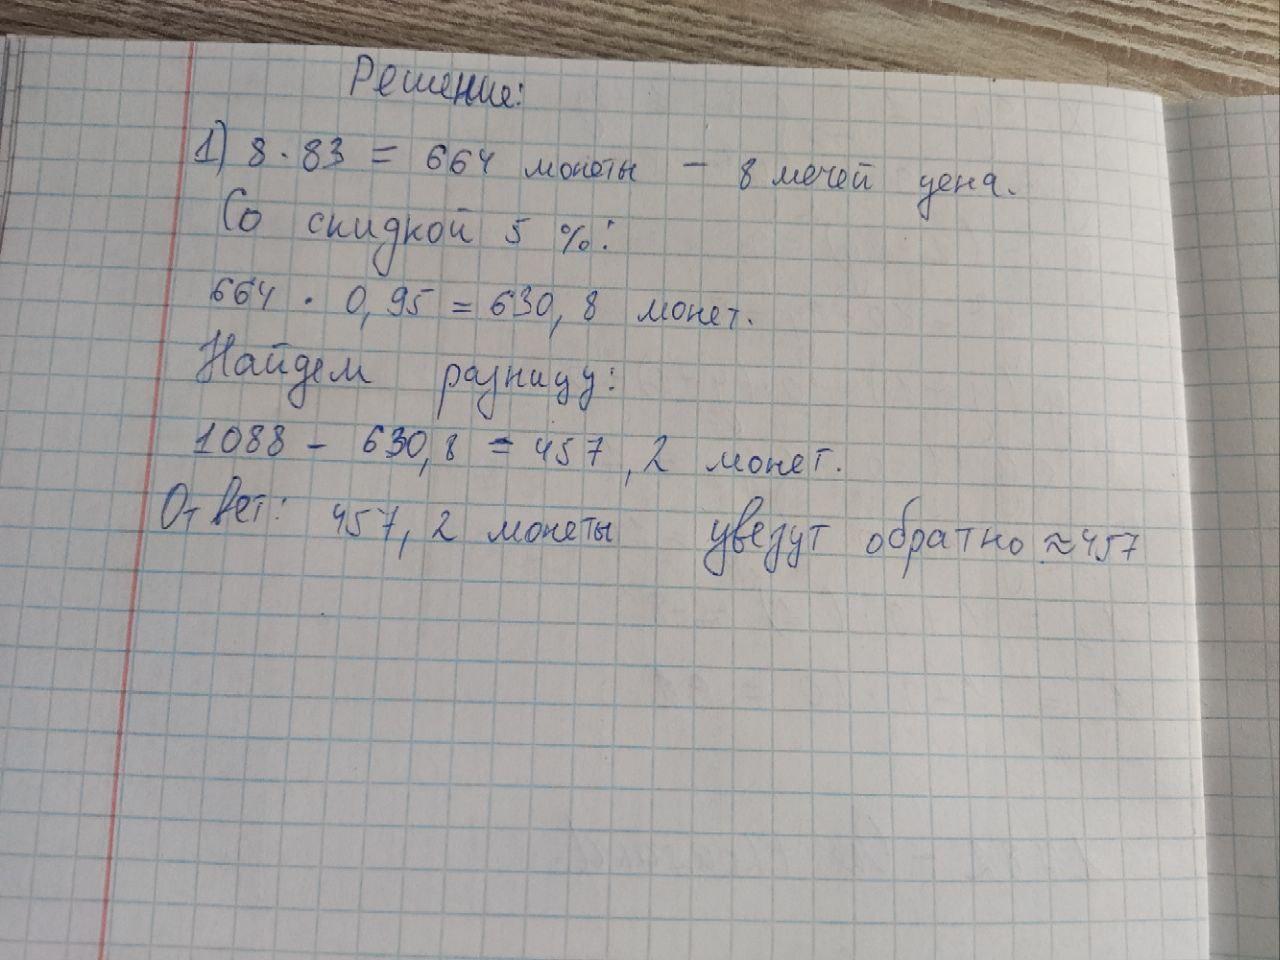 Решение:
1) 8 · 83 = 664 монеты - 8 мечей цена.
Со скидкой 5 %:
664 · 0,95 = 630,8 монет.
Найдем разницу:
1088 - 630,8 = 457,2 монет.
Ответ: 457,2 монеты увезут обратно ≈ 457